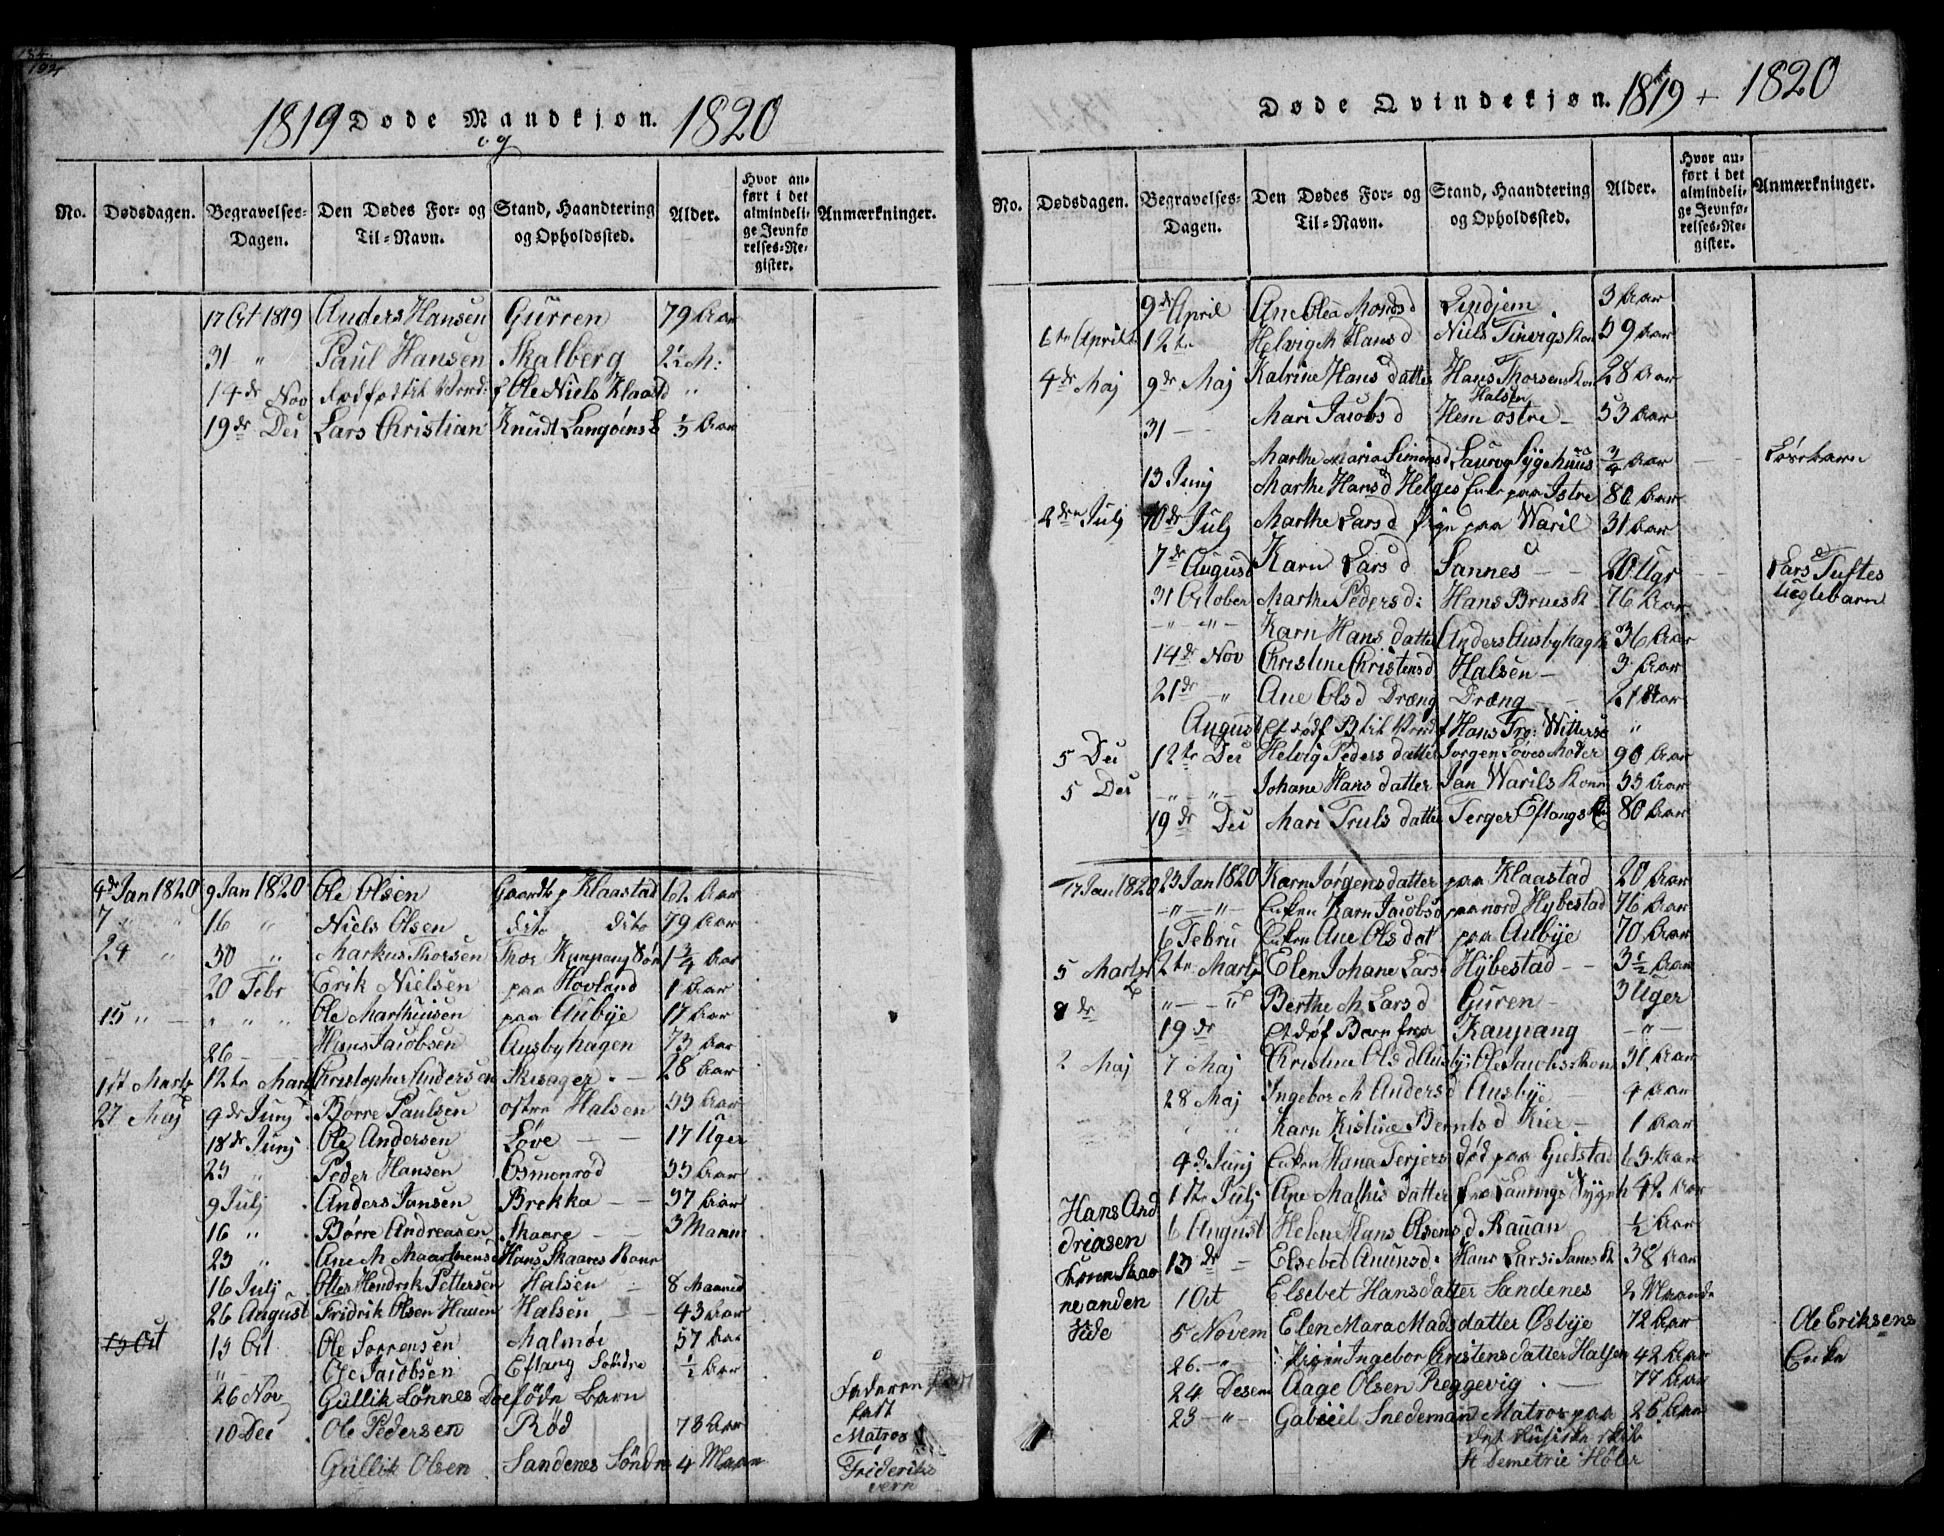 1819 Døde Mandkjøn. 1820
og
No. Dødsdagen. Begravelses-Dagen. Den Dødes For- og Til-Navn. Stand, Haandtering og Opholdssted. Alder. Hvor anført i det almindelige Jevnførelses-Register. Anmærkninger.
17 Oct 1819 Anders Hansen Gurren 79 Aar
31 " Paul Hansen Skalberg 2½ M:
14de Nov dødfødt f Ole Niels Klaastd "
19de Dec Lars Christian Knudt Langøens 1/3 Aar
4de Jan 1820 9 Jan 1820 Ole Olsen Gaardb p Klaastad 62 Aar
7 " 16 " Niels Olsen dito dito 79 Aar
24 " 30 " Markus Thorsen Thor Kumpang Søn 1¾ Aar
20 Febr Erik Nielsen paa Hovland 1 Aar
15 " " " " Ole Marthinsen paa Aubye 17 Aar
26 Hans Jacobsen Ausbyhagen 73 Aar
1st Marts 12te Marts Christopher Andersen Skisager 28 Aar
27 Maj 9de Junj Børre Paulsen østre Halsen 53 Aar
18de Junj Ole Andersen Løve 17 Uger
25 " Peder Hansen Osmonrød 55 Aar
9 Julj Anders Jansen Brekka 37 Aar
16 " Børre Andreasen Skaare 3 Maan
23 " Ane M Maarthensd Hans Skaares Kone
16 Julj Hendrik Pettersen Halsen 8 Maaned
26 August Fridrik Olsen Hauen Halsen 43 Aar
15 Oct 15 Oct Ole Sørrensen Malmøi 57 Aar
" Ole Jacobsen Eftang Söndre ½ Aar
26 Nov Gullik Lønnes Dødfødn Barn
10 Dec Ole Pedersen Rød 78 Aar
Faderen
fast
Matros
Gullik Olsen Sandenes Søndre 4 Maan
Frideriks
vern
Døde Qvindekjøn. 1819 + 1820
No. Dødsdagen. Begravelses-Dagen. Den Dødes For- og Til-Navn. Stand, Haandtering og Opholdssted. Alder. Hvor anført i det almindelige Jevnførelses-Register. Anmærkninger.
9de April Ane Olea Monsd Lindjem 3 Aar
6te April 12te Helvig M Hansd Niels Tinvigs Kon 59 Aar
4de Maj 9de Maj Katrine Hans datter Hans Thorsens Kon 28 Aar
Halsen
31 Mari Jacobsd Hem østre 53 Aar
Marthe Maria Simonsd Laurvg Sygehuus ¾ Aar Løsebarn
13 Junj Marthe Hansd Helges Enke paa Istre 80 Aar
2den Julj 10de Julj Marthe Larsd Pige paa Waril 31 Aar
7de August Karn Larsd Sannes 20 Ugr Lars Tuftes
uegtebarn
31 October Marthe Pedersd: Hans Brues K 76 Aar
" " Karn Hans datter Anders Ausbyhagn 36 Aar
14de Nov Christine Christensd Halsen 3 Aar
21de " Ane Olsd Dræng Dræng 21 Aar
August et dødf B f Hans Wittersø "
5 Dec 12te Dec Helvig Peders datter Jørgen Løves Moder 90 Aar
5 Dec " " Johane Hans datter Jan Warils Kone 55 Aar
19de Dec Mari Truls datter Terger Eftangs 80 Aar
17 Jan 1820 23 Jan 1820 Karn Jørgens datter paa Klaastad 20 Aar
" " Enken Karn Jacobsd paa nord Hybestad 76 Aar
6 Febru Enken Ane Olsdat paa Aubye 70 Aar
5 Marts 12te Marts Elen Johane Larsd Hybestad 3½ Aar
8de " " Berthe M Larsd Guren 3 Uger
19de et døf Barn fra Kaupang "
2 Maj 7 Maj Christine Olsd Ausby: Ole Jacobs Kone 31 Aar
28 Maj Ingebor M Andersd Ausbye 4 Aar
" " Karn Kistine Berntsd Kier 1 Aar
4de Junj Enken Hana Terjers død paa Gielstad 65 Aar
17 Julj Ane Mathis datter fra Laurvigs Sygeh 42 Aar
Hans And
driasen
Skaa
ne anden
side
6 August Helene Hans Olsens d Rauan ½ Aar
13de Elsebet Amundsd. Hans Larsi Sannes K 38 Aar
1 Oct Elsebet Hansdatter Sandenes 2 Maande
5 Novem Elen Mara Mads datter Østbye 72 Aar Ole Eriksens
Enke
26 " Ingebor Cristens datter Halsen 42 Aar
24 Desem Aage Olsen Reggevig 77 Aar
23 " Gabriel Snedeman Matros paa 26 Aar
det Rusiske skib
St Demetrie Høler